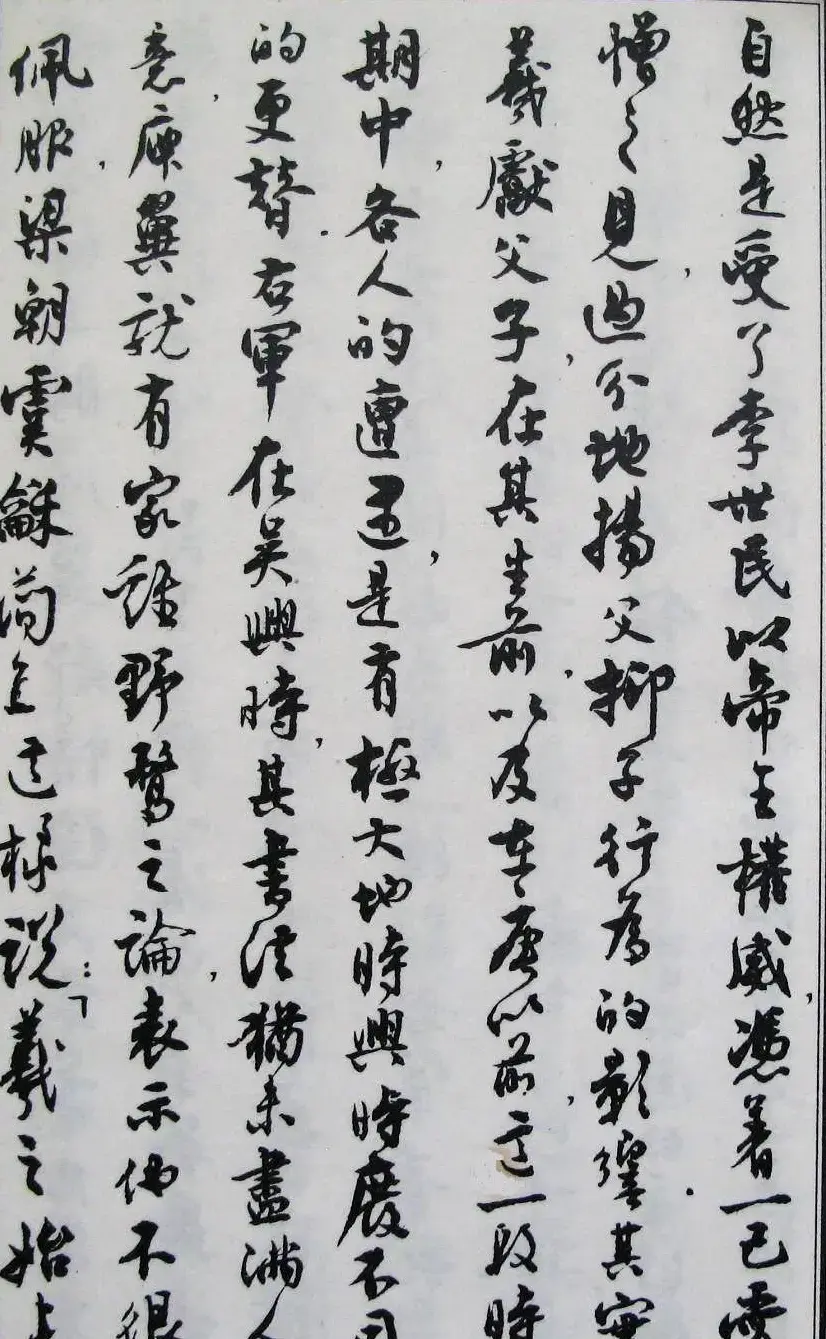 自然是受了李世民以帝王權威,憑着一己愛
憎之見,過分地揚父抑子行為的影響.其實
羲獻父子,在其生前,以及在唐以前,這一段時
期中,各人的遭遇,是有極大地時興時廢不同
的更替.右軍在吳興時,其書法猶未盡滿人
意,庾翼就有家雞野鶩之論,表示他不很
佩服,梁朝虞龢論上這樣說:「羲之始